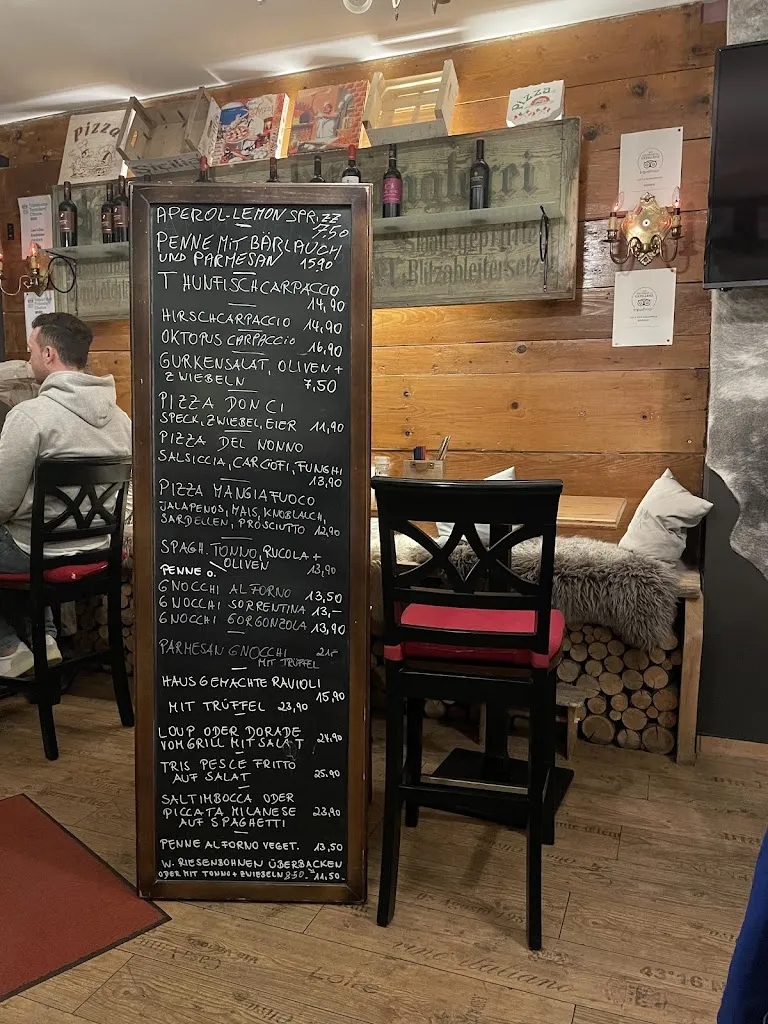 Pizza
Pizza
Sicilia
APEROL-LEMON SPRIZZ
7,50
PENNE MIT BÄRLAUCH
UND PARMESAN 15,90
THUNFISCHCARPACCIO
14,90
HIRSCHCARPACCIO 14,90
OKTOPUS CARPACCIO 16,90
GURKENSALAT, OLIVEN +
ZWIEBELN 7,50
PIZZA DON CI
SPECK, ZWIEBEL, EIER 11,90
PIZZA DEL NONNO
SALSICCIA, CARCIOFI, FUNGHI
13,90
PIZZA MANGIAFUOCO
JALAPENOS, MAIS, KNOBLAUCH,
SARDELLEN, PROSCIUTTO 12,90
SPAGH. TONNO, RUCOLA +
OLIVEN 13,90
PENNE O.
GNOCCHI AL FORNO 13,50
GNOCCHI SORRENTINA 13,–
GNOCCHI GORGONZOLA 13,90
PARMESAN GNOCCHI 21,-
MIT TRÜFFEL
HAUSGEMACHTE RAVIOLI
15,90
MIT TRÜFFEL 23,90
LOUP ODER DORADE
VOM GRILL MIT SALAT 24,90
TRIS PESCE FRITTO
AUF SALAT 25,90
SALTIMBOCCA ODER
PICCATA MILANESE 23,90
AUF SPAGHETTI
PENNE AL FORNO VEGET. 13,50
W. RIESENBOHNEN ÜBERBACKEN
ODER MIT TONNO + ZWIEBELN 8,50.- 11,50.
Blitzableitersetz
vino italiano
43°46 N